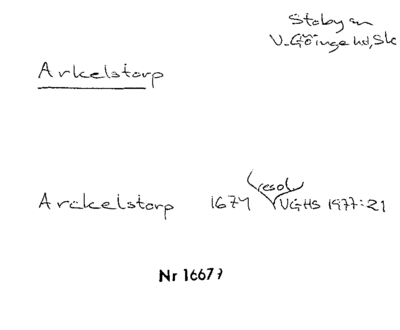 Stoby sn
V. Göinge hd, Sk
Arkelstorp
(resol)
Arckelstorp 1674 VGHS 1977:21
Nr 16677